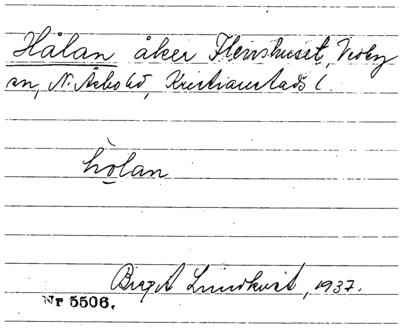 Hålan åker Flenshuset, Verby
sn, N. Åsbo hd, Kristianstads l.
họlan
Birgit Lundkvist, 1937.
Nr 5506.